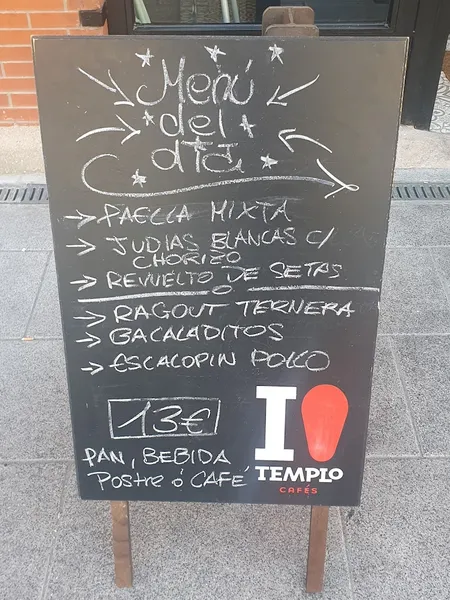 Menú
del
día
PAELLA MIXTA
JUDIAS BLANCAS C/
CHORIZO
REVUELTO DE SETAS
RAGOUT TERNERA
BACALADITOS
ESCALOPIN POLLO
13€
PAN, BEBIDA
Postre ó CAFÉ
I
TEMPLO
CAFÉS